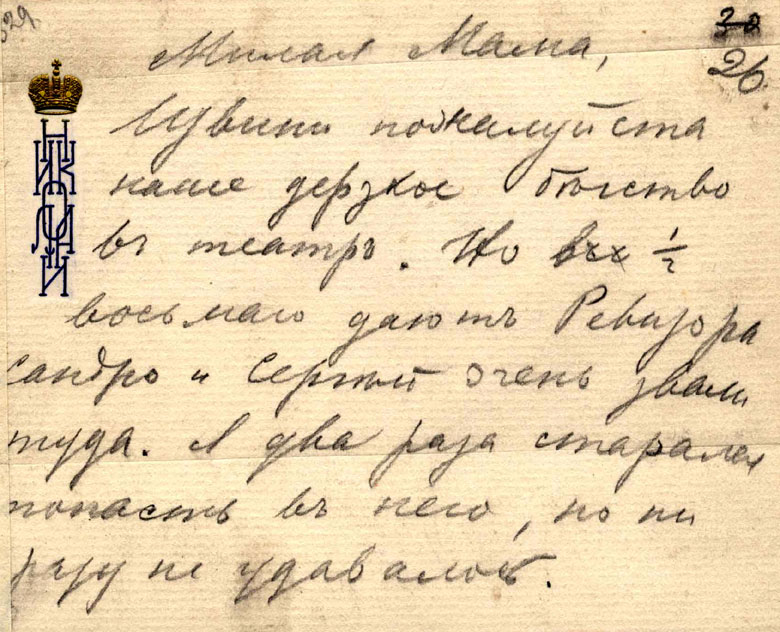 529.
32
26.
Милая Мама,
Извини пожалуйста
наше дерзкое бѣгство
въ театръ. Но въ ½
восьмаго даютъ Ревизора
Сандро и Сергѣй очень звали
туда. Я два раза старался
попасть въ него, но ни
разу не удавалось.